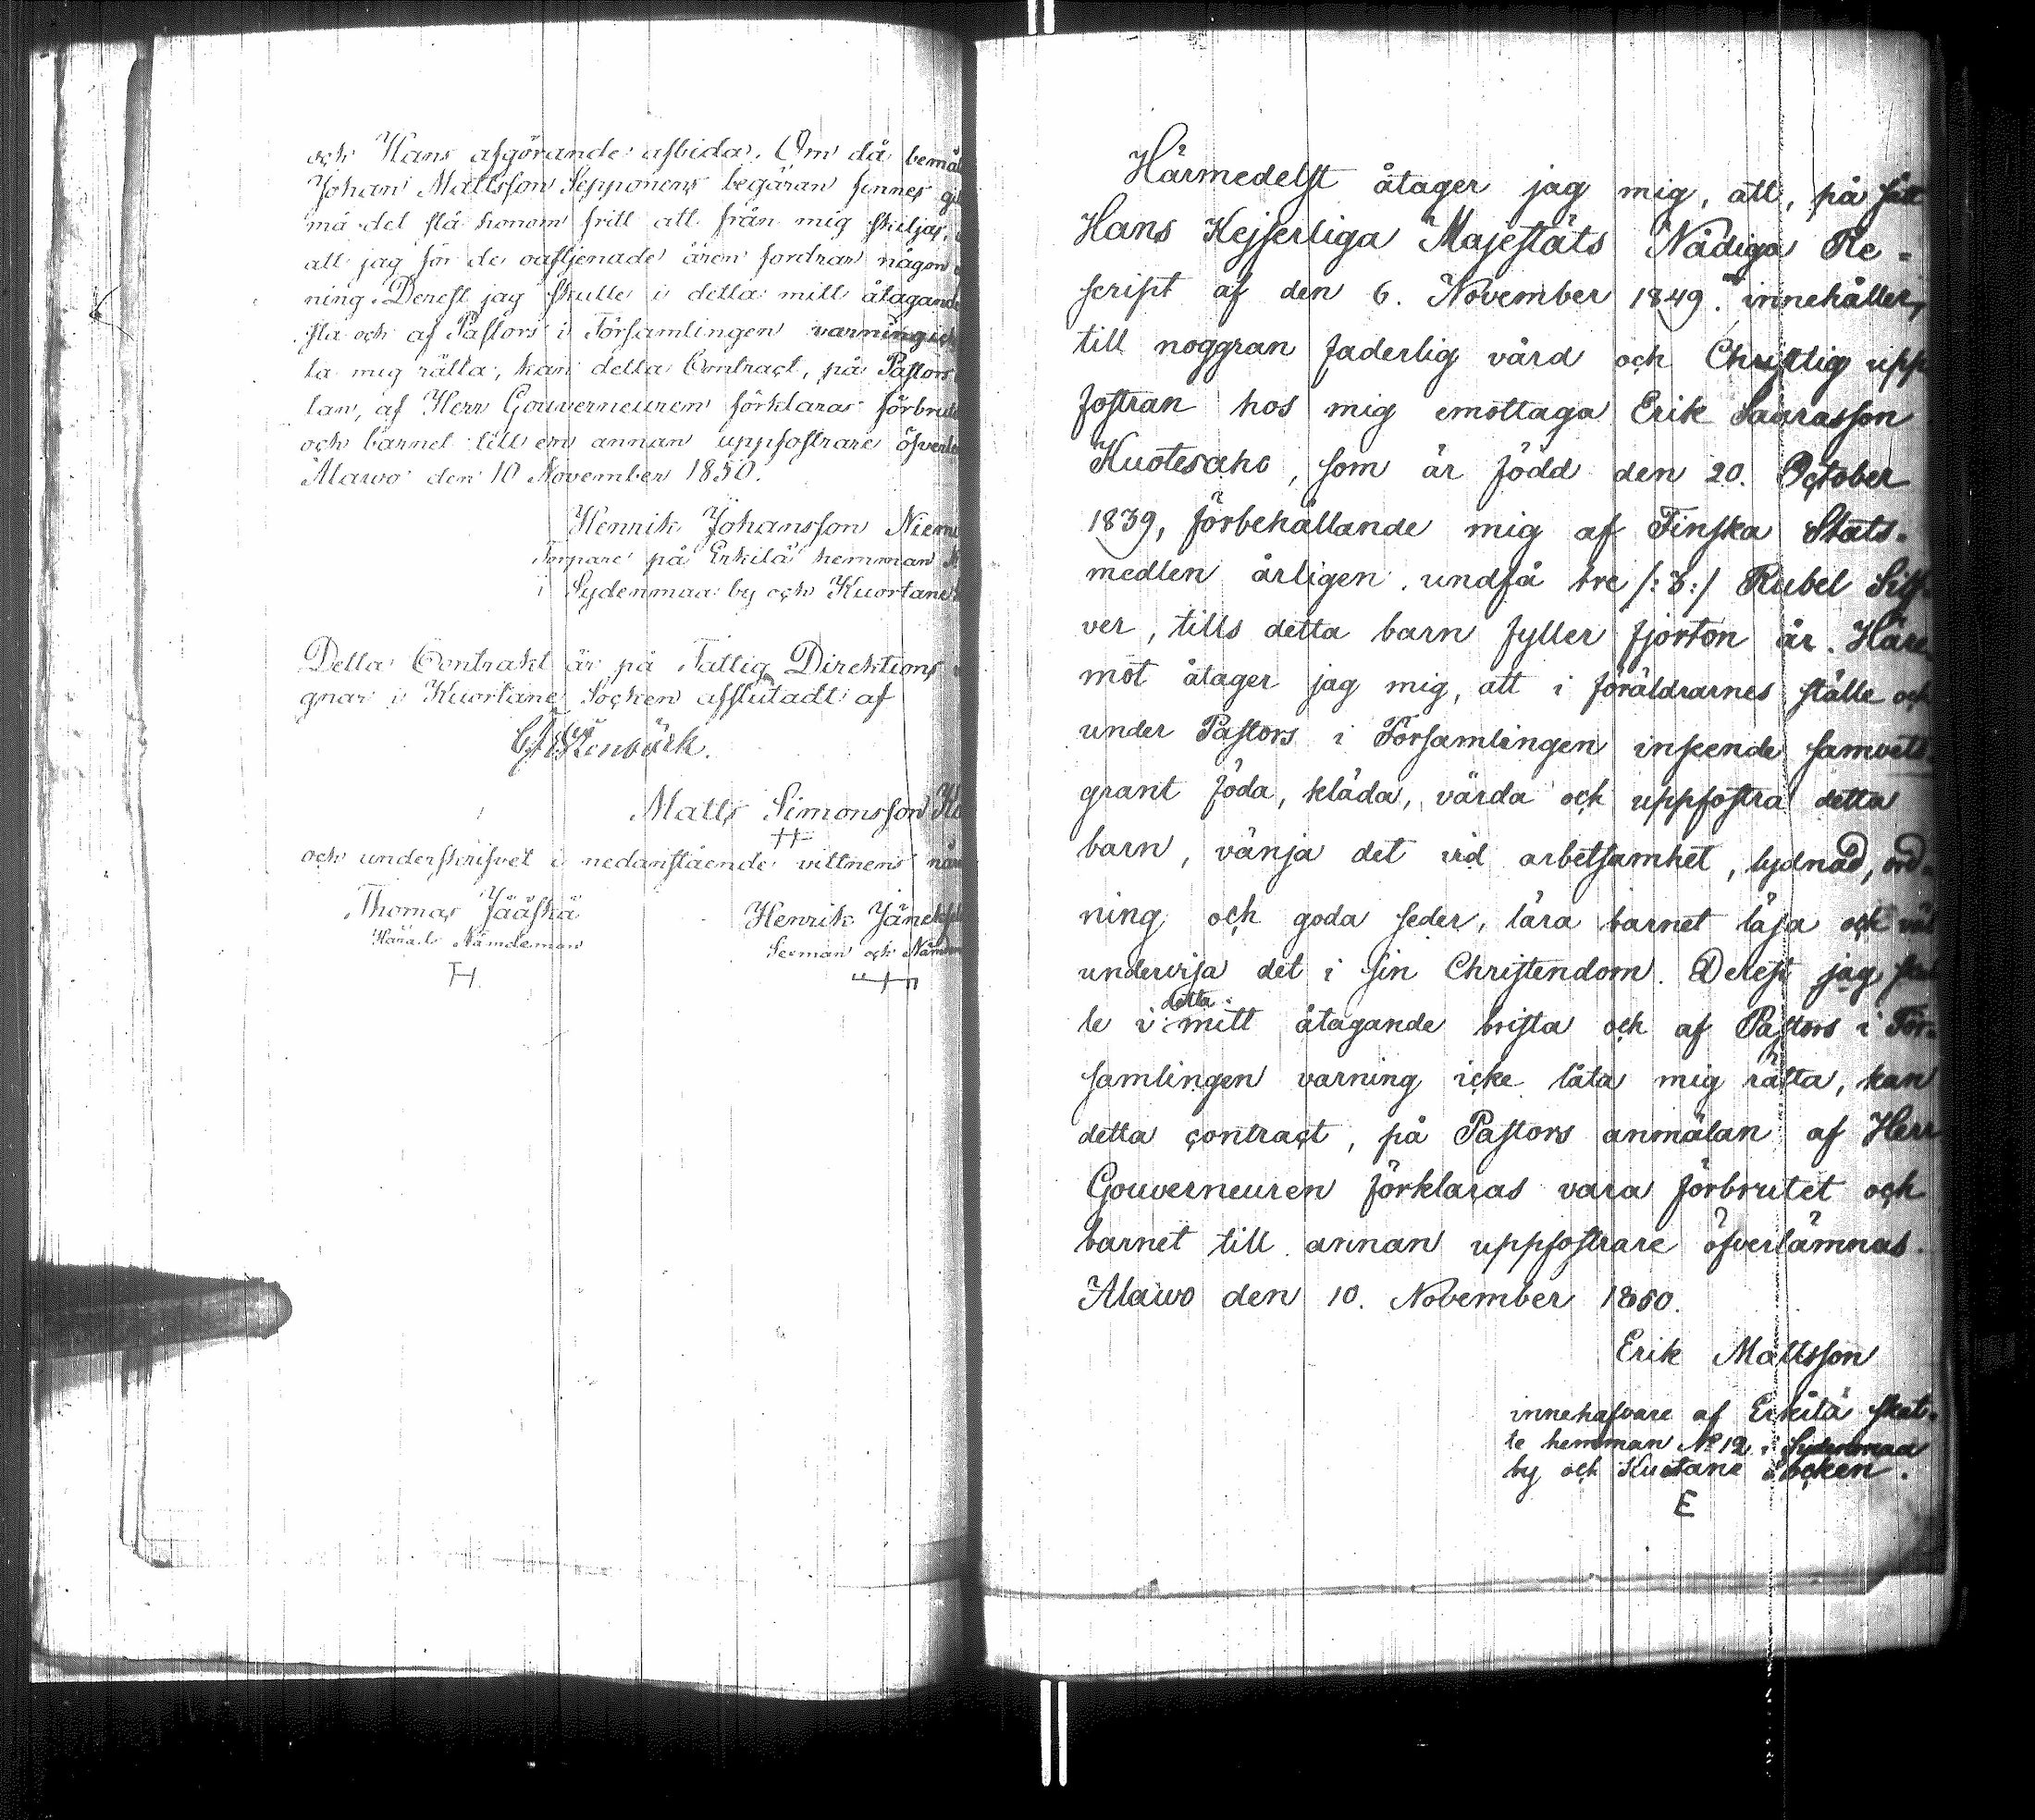 och Hans afgörande afbida. Om då bemäl
Johan Mattsson Sepponens begäran finnes
må det stå honom fritt att från mig skiljas,
att jag för de oaftjenade åren fordrar någon
ning. Derest jag skulle i detta mitt åtagande
sta och af Pastors i Församlingen varning ick
ta mig rätta, kan detta Contract, på Pastors
lan, af Herr Gouverneuren förklaras förbrut
och barnet till en annan uppfostrare öfverl
Alawo den 10 November 1850.
Henrik Johansson Niem
Torpare på Erkilä hemman N
i Sydenmaa by och Kuortane
Detta Contrakt är på Fattig Direktions
gnar i Kuortane Socken afslutadt af
Matts Simonsson
och underskrifvet i nedanstående vittnens när
Thomas Jääskä Henrik Jänek
Härads Nämdeman Sexman och Nämdem
Härmedelst åtager jag mig, att, på sätt
Hans Kejserliga Majestäts Nådiga Re-
script af den 6. November 1849. innehåller,
till noggran faderlig vård och Christlig upp
fostran hos mig emottaga Erik Saarasson
Kuotesaho, som är född den 20. October
1839, förbehållande mig af Finska Stats-
medlen årligen undfå tre /:3:/ Rubel Silf-
ver, tills detta barn fyller fjorton år. Häre
mot åtager jag mig, att i föräldrarnes ställe och
under Pastors i Församlingen inseende samvets-
grant föda, kläda, vårda och uppfostra detta
barn, vänja det vid arbetsamhet, lydnad, ord-
ning och goda seder, lära barnet läsa och väl
undervisa det i sin Christendom. Derest jag skul
le i detta mitt åtagande brista och af Pastors i För-
samlingen varning icke låta mig rätta, kan
detta contract, på Pastors anmälan af Herr
Gouverneuren förklaras vara förbrutet och
barnet till annan uppfostrare öfverlämnas.
Alawo den 10. November 1850.
Erik Mattsson
innehafvare af Erkilä skat-
te hemman No 12 i Sydenmaa
by och Kuotane Socken.
E